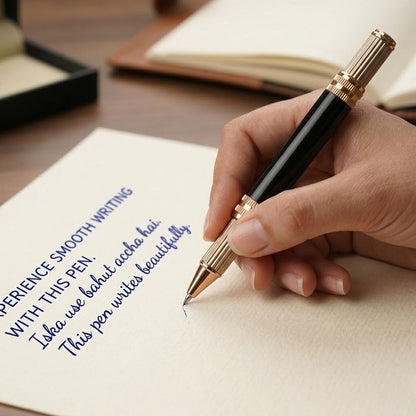 EXPERIENCE SMOOTH WRITING
WITH THIS PEN.
Iska use bahut accha hai.
This pen writes beautifully.